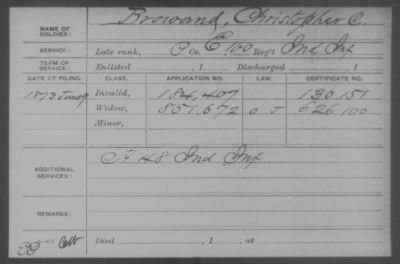 NAME OF SOLDIER: Browand, Christopher C.
SERVICE: Late rank, C Co. E, 100 Reg't Ind Inf
TERM OF SERVICE: Enlisted , 1 Discharged , 1
DATE OF FILING. CLASS. APPLICATION NO. LAW. CERTIFICATE NO.
1873 June 9 Invalid, 184,407 130,151
Widow, 851,672 626,100
Minor,
ADDITIONAL SERVICES: A 48 Ind Inf
REMARKS:
Died , 1 , at